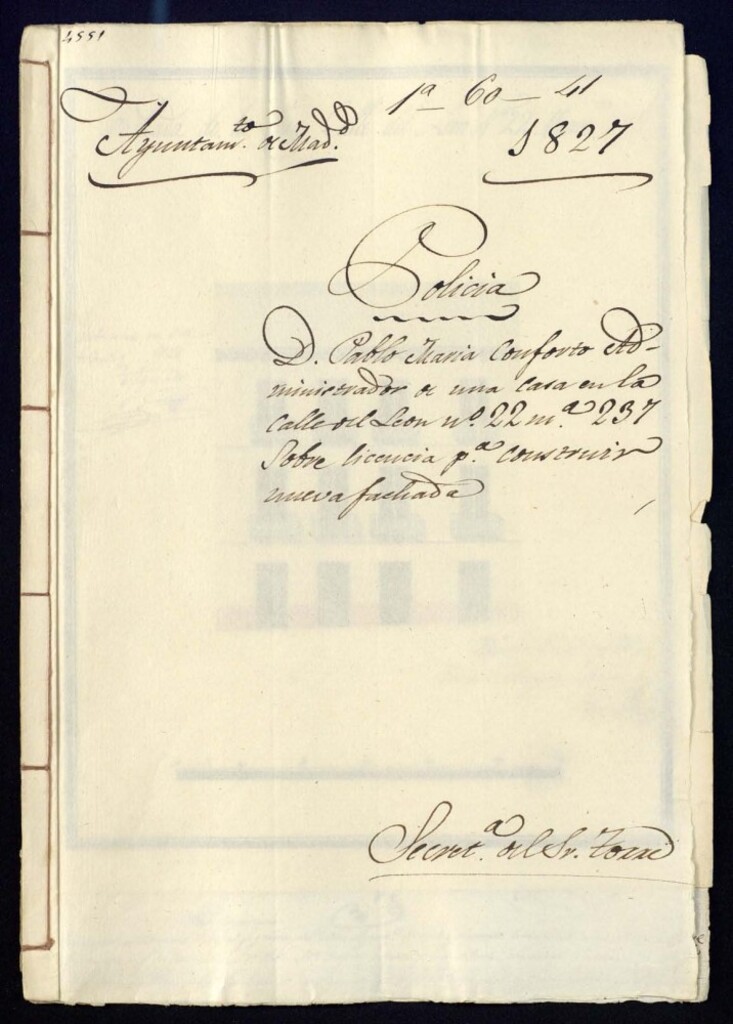 4551
1ª 60 – 41
Ayuntam.to de Mad.d
1827
Policia
D. Pablo Maria Conforto Ad-
ministrador de una casa en la
Calle del Leon nº. 22 m.ª 237
Sobre licencia p.ª construir
nueva fachada
Secret.ª del Sr.